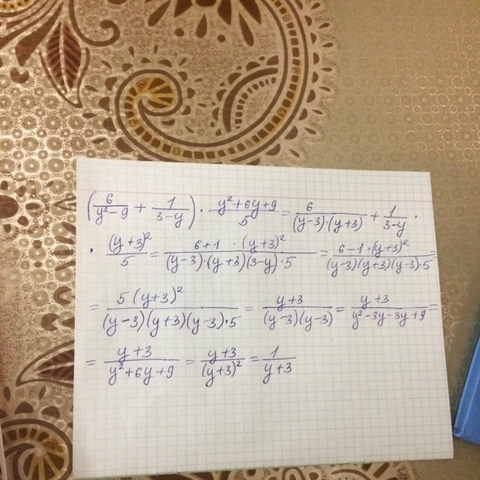 (6/(y²-9) + 1/(3-y)) · (y²+6y+9)/5 = 6/((y-3)·(y+3)) + 1/(3-y) ·
· (y+3)²/5 = (6+1 · (y+3)²)/((y-3)·(y+3)(3-y)·5) = (6-1·(y+3)²)/((y-3)(y+3)(y-3)·5) =
= (5(y+3)²)/((y-3)(y+3)(y-3)·5) = (y+3)/((y-3)(y-3)) = (y+3)/(y²-3y-3y+9) =
= (y+3)/(y²+6y+9) = (y+3)/(y+3)² = 1/(y+3)